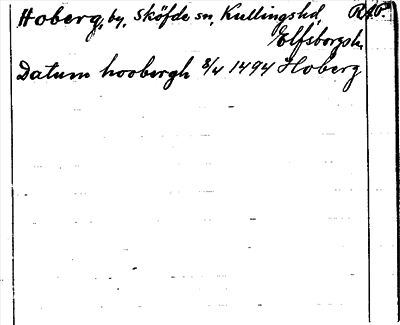 Hoberg, by, Sköfde sn, Kullingshd, R.A.P.
Elfsborgsl.
Datum hoobergh 8/4 1494 Hoberg